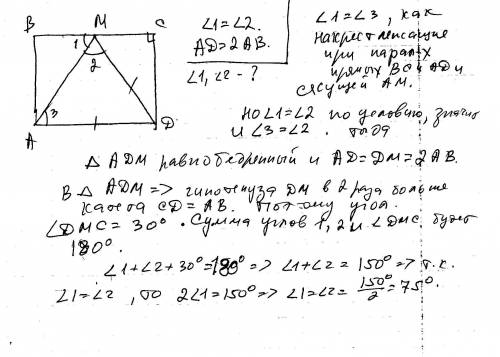 B M C
1
2
3
A D
∠1=∠2.
AD=2AB.
∠1,∠2-?
∠1=∠3, как
накрест лежащие
при парал-х
прямых BC и AD и
сящей AM.
но ∠1=∠2 по условию, значит
и ∠3=∠2. тогда
△ ADM равнобедренный и AD=DM=2AB.
В △ ADM => гипотенуза DM в 2 раза больше
катета CD=AB. Поэтому угол
∠DMC=30°. Сумма углов 1, 2 и ∠DMC будет
180°.
∠1+∠2+30°=180° => ∠1+∠2=150° => т.к.
∠1=∠2, то 2∠1=150° => ∠1=∠2=150°/2=75°.